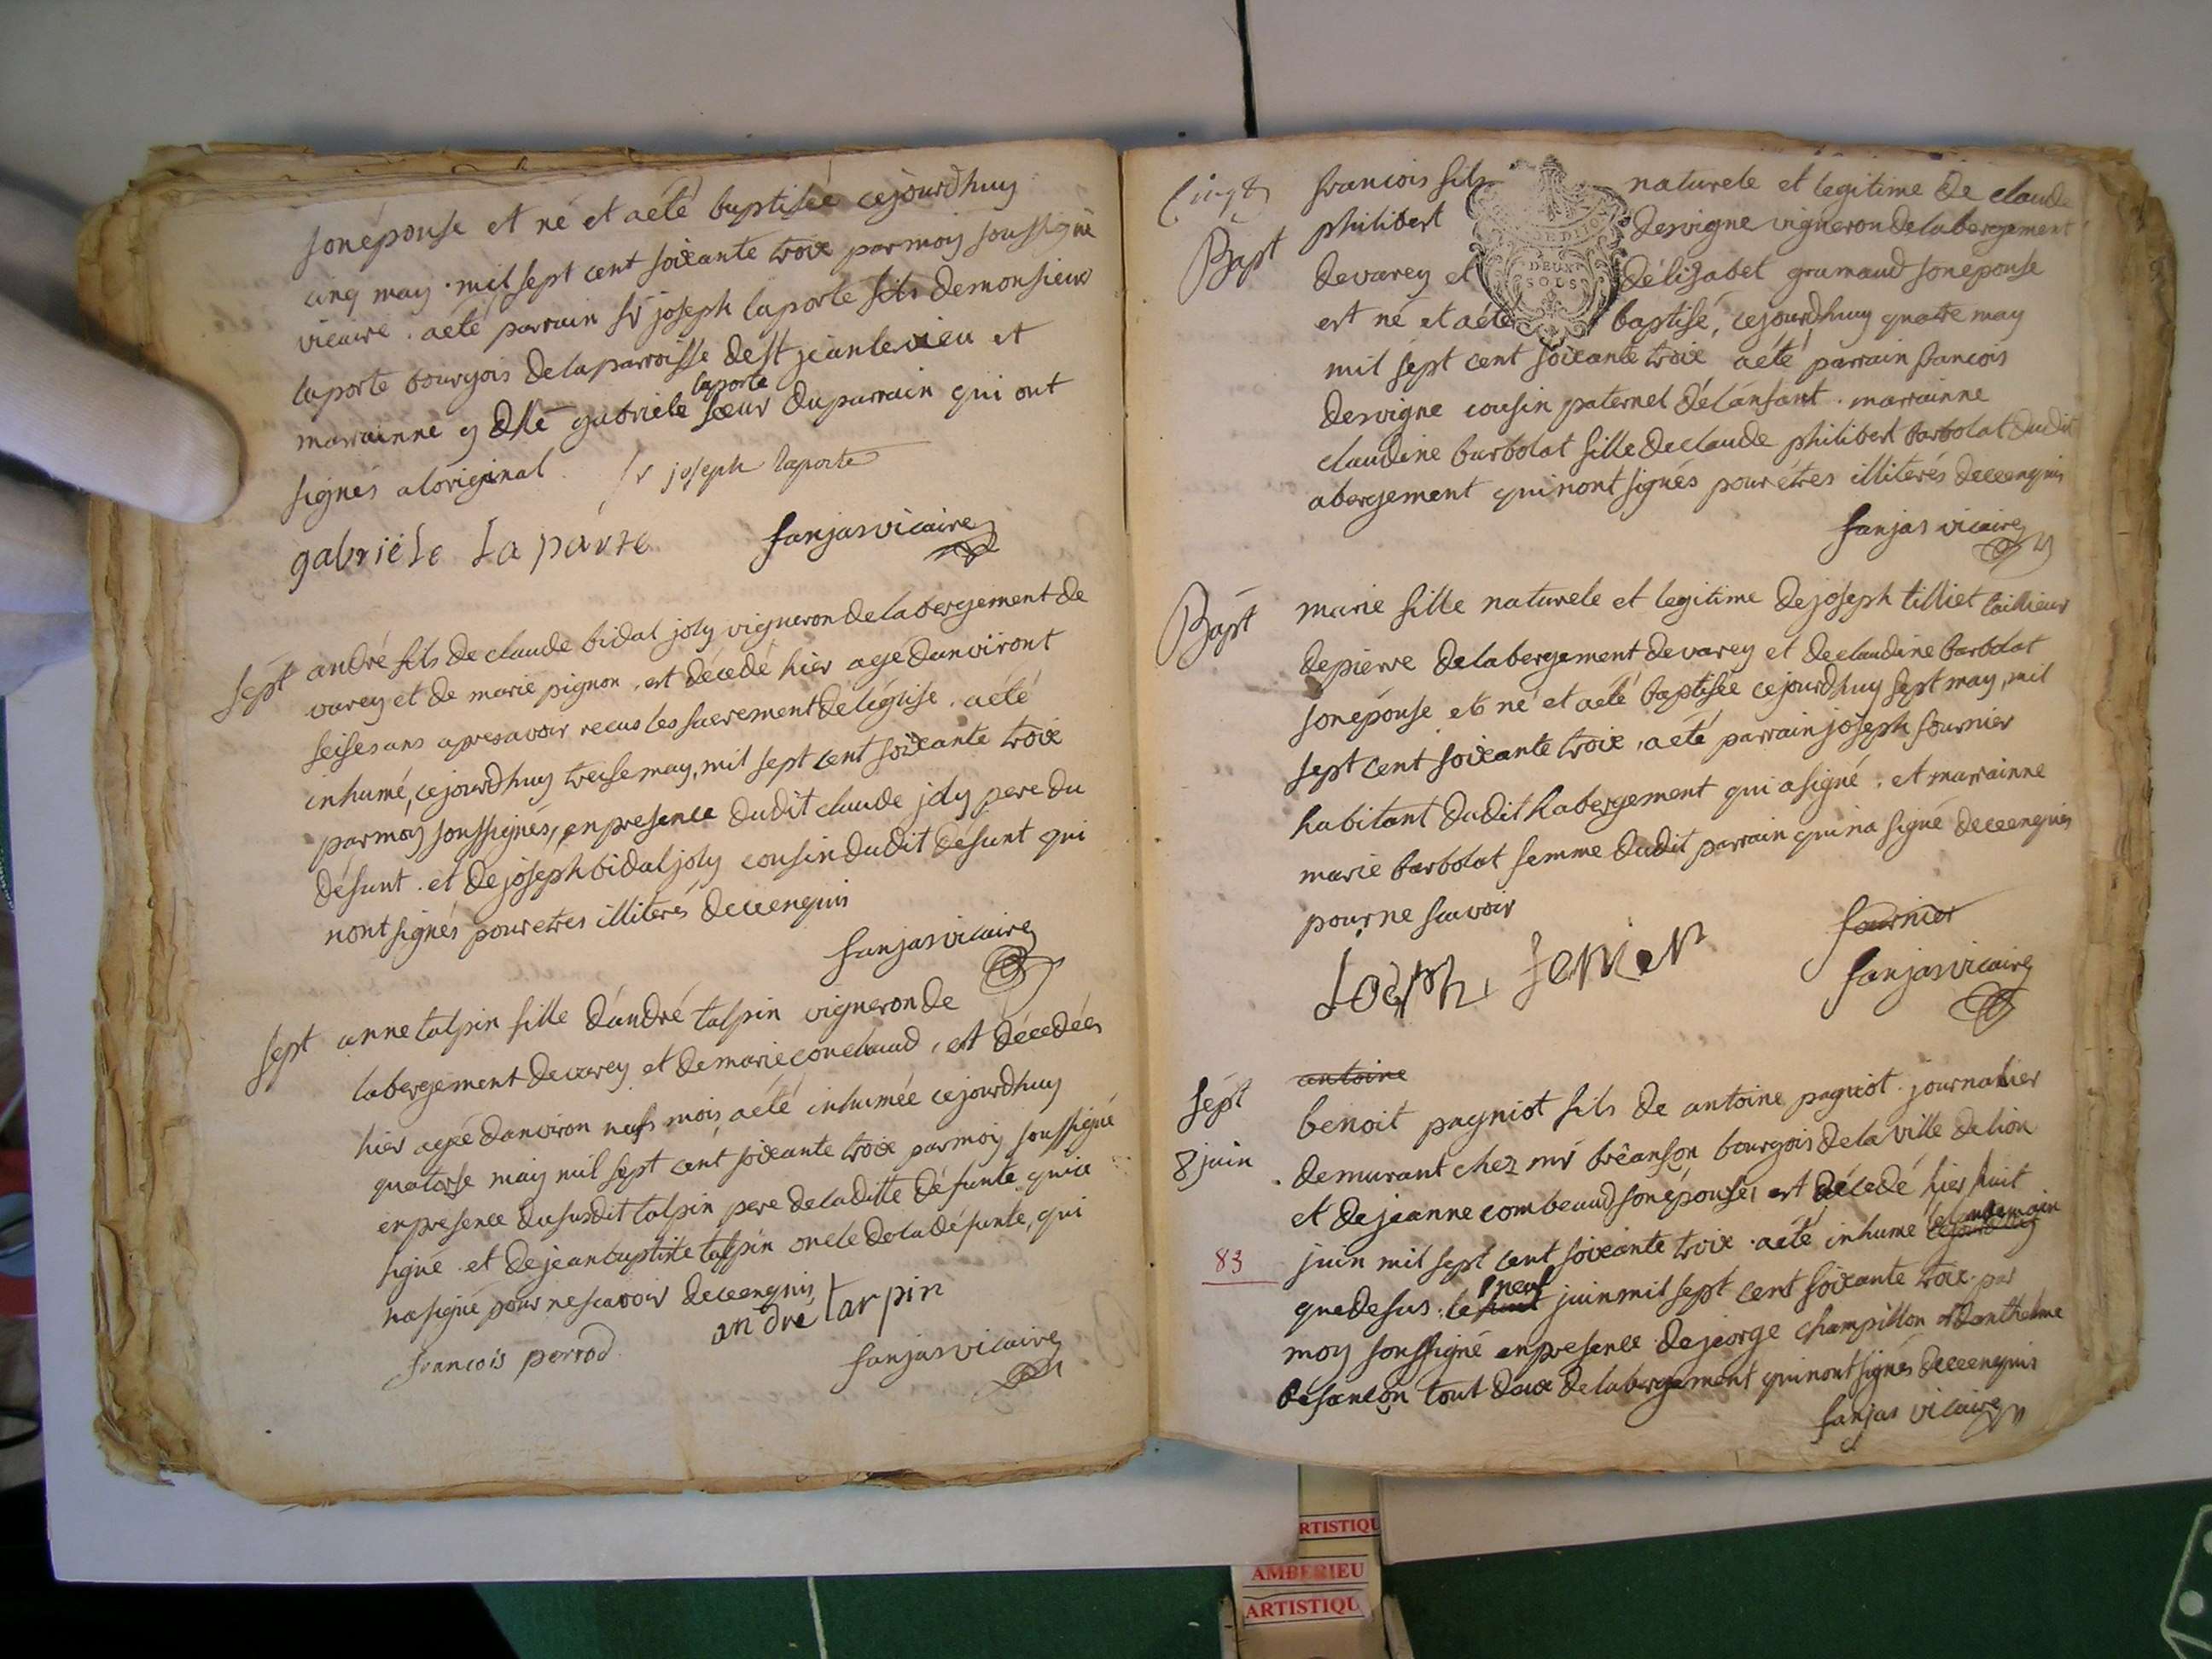 sonépouse et né et aété baptiseé cejourdhuy
cinq may mil sept cent soixante troix parmoy soussigné
vicaire . aété parrain sr joseph laporte fils demonsieur
laporte bourgois delaparroisse dest jeanlevieu et
marrainne dlle gabriele laporte soeur duparrain qui ont
signés aloriginal . sr joseph laporte
gabriéle Lapórte
fanjasvicaire
sept andré fils de claude bidal joly vigneron delabergement de
varey et de marie pignon . est décedé hier agé danviront
seisesans apresavoir recus les sacrement déléglise . aété
inhumé, cejourdhuy treisemay, mil sept cent soixante troix
parmoy soussignés, enpresence dudit claude joly pere du
défunt . et de joseph bidaljoly cousin dudit défunt qui
nont signés pour etres illiterés deceenquis
fanjasvicaire
sept anne talpin fille dándré talpin vigneron de
labergement devarey et demarie conchaud , est décedéé
hier agéé danviron neuf mois, aété inhuméé cejourdhuy
quatorse maiy mil sept cent soixante troix parmoy soussigné
enpresence dususdit talpin pere deladitte défunte qui a
signé . et de jeanbaptiste talpin oncle deladéfunte, qui
nasigné pour nescavoir deceenquis
andré tarpin
francois perrod
fanjasvicaire
francois fils naturele et legitime de claude
philibert desvigne vignerondelabergement
Bapt
devarey et
DEUX
SOLS
délisabet gramaud sonépouse
est né et aété baptisé, cejourdhuy quatre may
mil sept cent soixante troix aété parrain francois
desvigne cousin paternel délánfant . marrainne
claudine barbolat fille declaude philibert barbolat dudit
abergement quinont signés pour étres illiterés deceenquis
fanjas vicaire
Bapt marie fille naturele et legitime dejoseph tilliet taillieur
depierre delabergement devarey et declaudine barbolat
sonépouse et né et aété baptisée cejourdhuy sept may, mil
sept cent soixante troix , aété parrain joseph fournier
habitant dudit habergement qui asigné . et marrainne
marie barbolat femme dudit parrain quina signé deceenquis
pour ne scavoir
fournier
fanjasvicaire
antoine
sépt benoit pagniot fils de antoine pagniot journalier
8 juin . demurant chez mr bréanson bourgois delaville delion
et dejeanne combeaud sonépouse, est décedé hier huit
83 juin mil sept cent soixante troix . aété inhumé lelandemain
quedesus . le neuf juin mil sept cent soixante troix par
moy soussigné enpresence dejeorge champillon et danthelme
bésançon tout deux delabergement quinont signés deceenquis
fanjas vicaire
RTISTIQU
AMBERIEU
ARTISTIQU